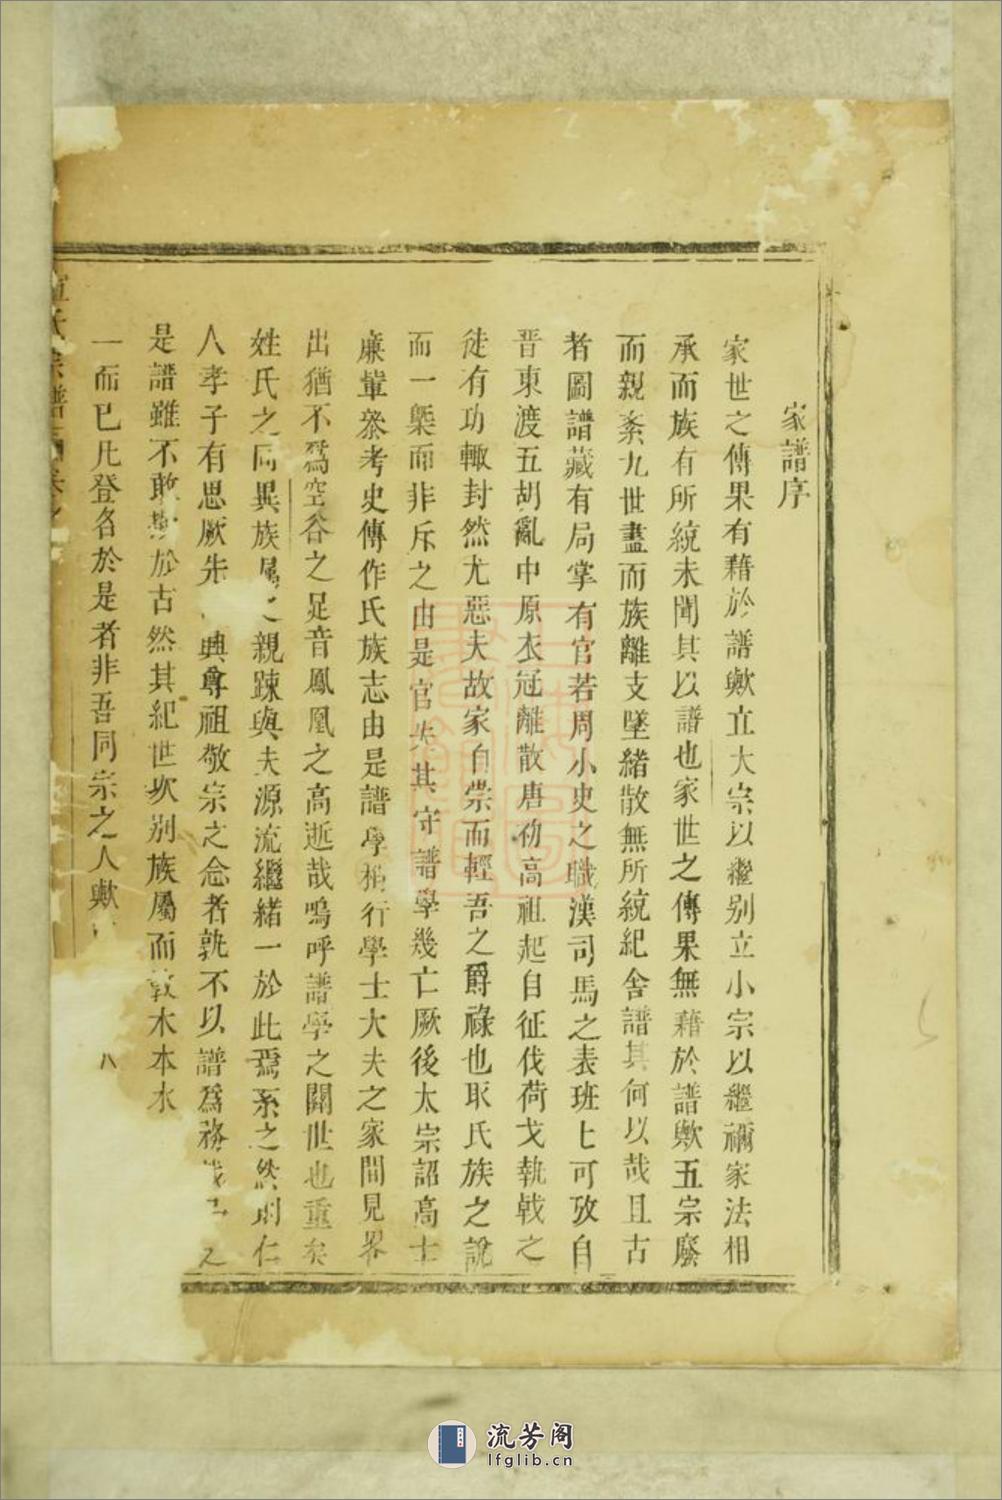 家譜序
家世之傳果有藉於譜歟立大宗以繼别立小宗以繼禰家法相
承而族有所統未聞其以譜也家世之傳果無藉於譜歟五宗廢
而親紊九世盡而族離支墜緒散無所統紀舍譜其何以哉且古
者圖譜藏有局掌有官若周小史之職漢司馬之表班七可攷自
晋東渡五胡亂中原衣冠離散唐初高祖起自征伐荷戈執戟之
徒有功輙封然尤惡夫故家自崇而輕吾之爵祿也取氏族之說
而一槩而非斥之由是官失其守譜學幾亡厥後太宗詔高士
廉軰叅考史傳作氏族志由是譜學稍行學士大夫之家間見畧
出猶不爲空谷之足音鳳凰之高逝哉嗚呼譜學之關世也重矣
姓氏之同異族属之親踈與夫源流繼緒一於此焉系之然則仁
人孝子有思厥先興尊祖敬宗之念者孰不以譜爲務哉之
是譜雖不敢於古然其紀世次别族屬而敦木本水
一而已凡登名於是者非吾同宗之人歟
氏宗譜
八
流芳阁
lfglib.cn